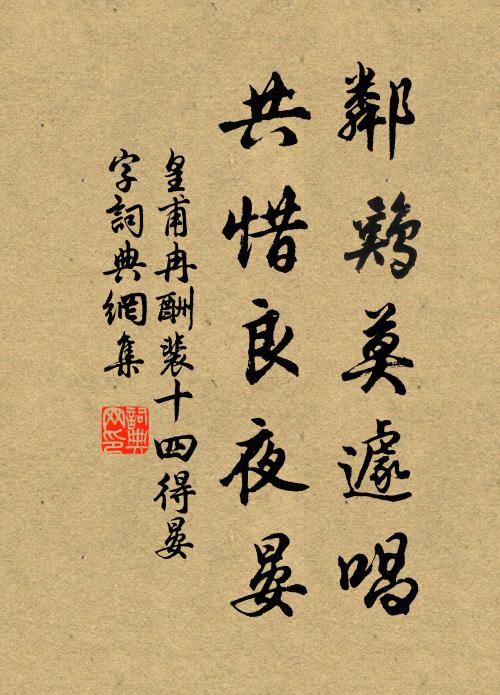 鄰鷄莫遽唱
共惜良夜晏
皇甫冉酬裴十四得晏
字詞典網集